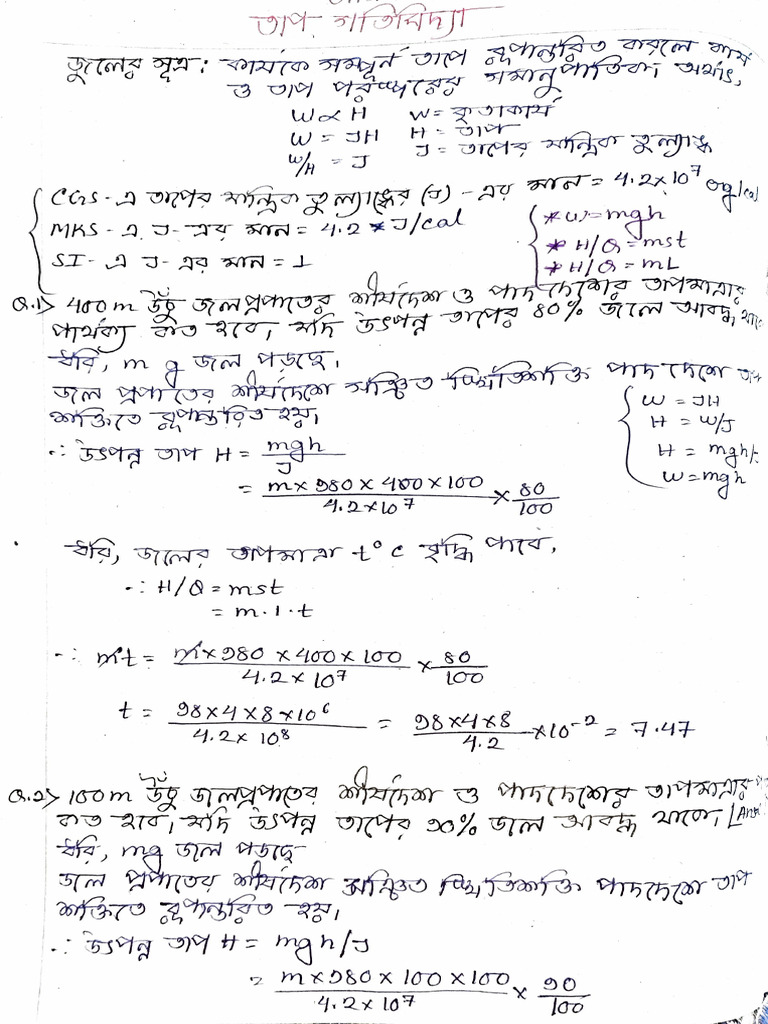 তাপ গতিবিদ্যা
জুলের সূত্র: কার্যকে সম্পূর্ন তাপে রূপান্তরিত করলে কার্য
ও তাপ পরস্পরের সমানুপাতিক। অর্থাৎ,
W ∝ H W = কৃতকার্য
W = JH H = তাপ
W/H = J J = তাপের যান্ত্রিক তুল্যাঙ্ক
CGS - এ তাপের যান্ত্রিক তুল্যাঙ্কের (J) - এর মান = 4.2 × 10⁷ erg/cal
MKS - এ J - এর মান = 4.2 J/cal
SI - এ J - এর মান = 1
* W = mgh
* H/Q = mst
* H/Q = mL
Q.1> 400 m উঁচু জলপ্রপাতের শীর্ষদেশ ও পাদদেশের তাপমাত্রার
পার্থক্য কত হবে, যদি উৎপন্ন তাপের 80% জলে আবদ্ধ থাকে
ধরি, m g জল পড়ছে।
জল প্রপাতের শীর্ষদেশে সঞ্চিত স্থিতিশক্তি পাদদেশে তাপ
শক্তিতে রূপান্তরিত হয়।
W = JH
H = W/J
H = mgh/J
W = mgh
∴ উৎপন্ন তাপ H = mgh/J
= m × 980 × 400 × 100 / 4.2 × 10⁷ × 80/100
ধরি, জলের তাপমাত্রা t°c বৃদ্ধি পাবে,
∴ H/Q = mst
= m.1.t
∴ mt = m × 980 × 400 × 100 / 4.2 × 10⁷ × 80/100
t = 98×4×8×10⁶ / 4.2 × 10⁸ = 98×4×8 / 4.2 × 10⁻² = 7.47
Q.2> 100 m উঁচু জলপ্রপাতের শীর্ষদেশ ও পাদদেশের তাপমাত্রার
কত হবে, যদি উৎপন্ন তাপের 90% জলে আবদ্ধ থাকে। [Ans
ধরি, mg জল পড়ছে
জল প্রপাতের শীর্ষদেশে সঞ্চিত স্থিতিশক্তি পাদদেশে তাপ
শক্তিতে রূপান্তরিত হয়।
∴ উৎপন্ন তাপ H = mgh/J
= m × 980 × 100 × 100 / 4.2 × 10⁷ × 90/100